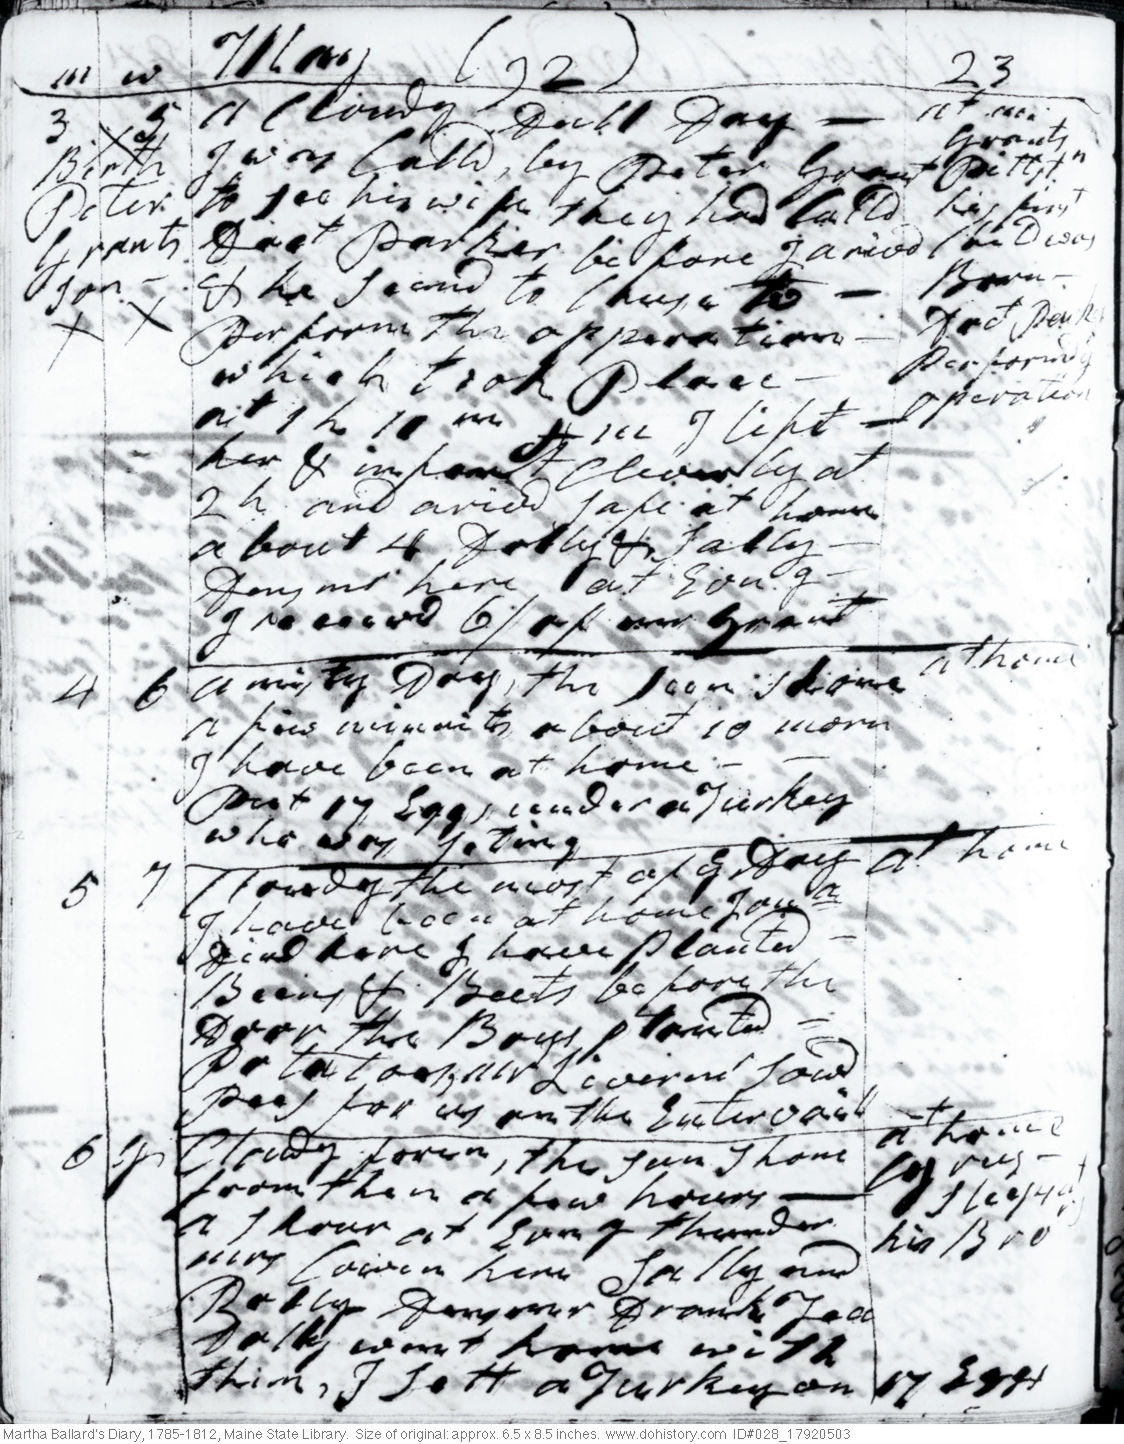 m w May (92) 23
3 5 a Cloudy Dull Day —
Birth I was Calld, by Peter Grant
Peter to see his wife they had Calld
Grants Doct Parker before I arivd
Son — & he seemd to Chuse to —
X X perform the opperation —
which took Place —
at 1 h 10 m I left —
her & infant Cleverly at
2 h and arivd safe at home
about 4 Dolly & Sally —
here at Evng —
I receivd 6/ of mr Grant
at mr
Grants
Pittstn
his first
Child was
Born —
Doct Park
performd
operation
4 6 a misty Day, the sun shone at home
a few minnits about 10 morn
I have been at home — —
Put 17 Eggs under a Turkey
who was seting
5 7 Clowdy the most of ye Day at home
I have been at home Jona
Dind here I have planted —
Beens & Beets before the
Door the Boys planted —
Potatoes, mr Livermt sowd
Pees for us on the Intervail
6 g Clowdy foren, the sun shone at home
from then a few hours — Cyrus —
a shour at Evng thunder
mrs Cowen here Sally and his Bro
Drank Tea
Dolly went home with
them, I sett a Turkey on 17 Eggs
Martha Ballard's Diary, 1785-1812, Maine State Library. Size of original: approx. 6.5 x 8.5 inches. www.dohistory.com ID#028_17920503